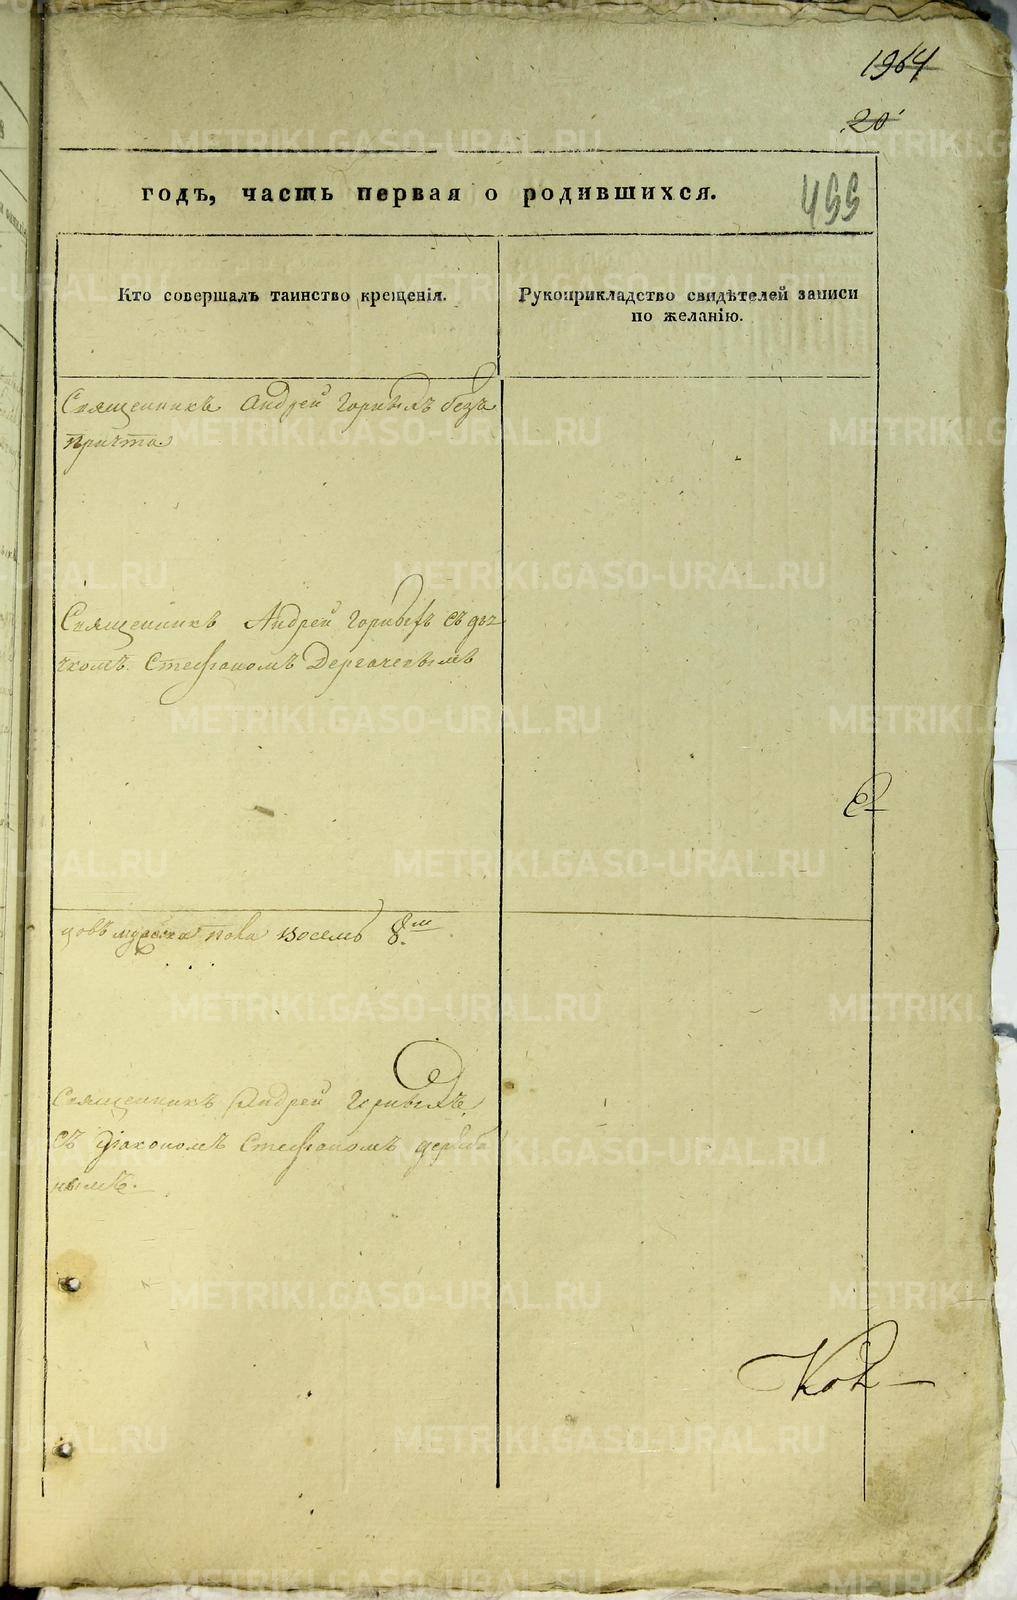 1964
20
499
годъ, часть первая о родившихся.
Кто совершалъ таинство крещенія.
Рукоприкладство свидѣтелей записи
по желанію.
Священникъ Андрей Горныхъ безъ
причта
Священникъ Андрей Горныхъ съ дья
чкомъ Стефаномъ Дергачевымъ
цовъ мужеска пола восемь 8.
Священникъ Андрей Горныхъ
съ діакономъ Стефаномъ
METRIKI.GASO-URAL.RU